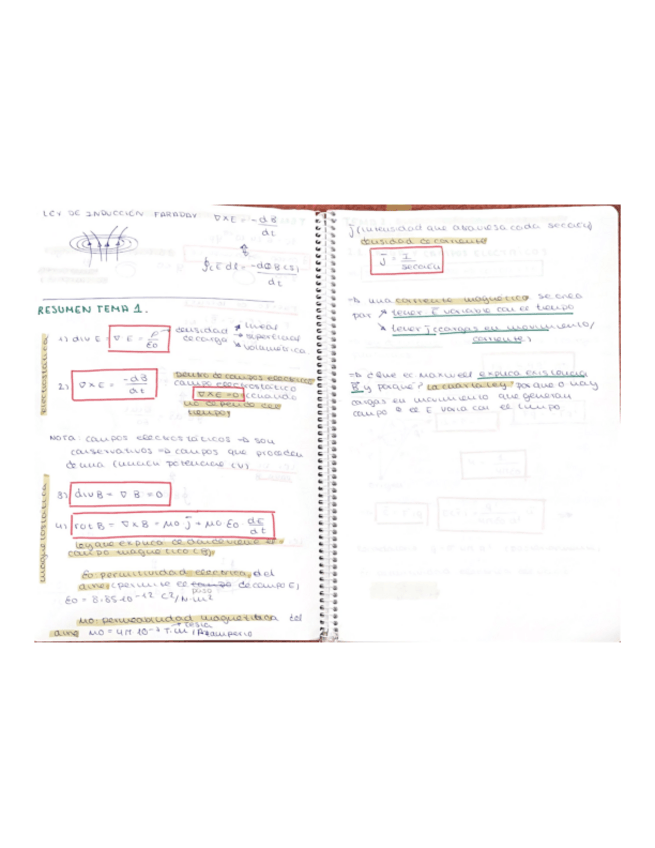 LEY DE INDUCCIÓN FARADAY ∇×E = -dB/dt
∮c E dl = -dΦB(s)/dt
RESUMEN TEMA 1.
electrostática
1) div E = ∇ E = ρ/ε0 → densidad de carga → lineal
→ superficial
→ volumétrica
2) ∇×E = -dB/dt
Dentro de campos eléctricos
campo electrostático
∇×E = 0 (cuando
no depende del
tiempo)
NOTA: campos electrostáticos → son
conservativos → campos que proceden
de una función potencial (V)
magnetostática
3) div B = ∇ B = 0
4) rot B = ∇×B = μ0 j + μ0 ε0 dE/dt
ley que explica
campo magnético (B)
ε0 permitividad eléctrica del
aire (permite el campo de campo E)
paso
ε0 = 8.85·10⁻¹² C²/N·m²
μ0: permeabilidad magnética del
Tesla
aire μ0 = 4π 10⁻⁷ T·m/Amperio
j (intensidad que atraviesa cada sección)
densidad de corriente
j = I/sección
→ una corriente magnético se crea
por → tener E variable con el tiempo
→ tener j (cargas en movimiento/
corriente)
→ ¿Que ec Maxwell explica existencia
B y porque? la cuarta ley porque o hay
cargas en movimiento que generan
campo o el E varía con el tiempo